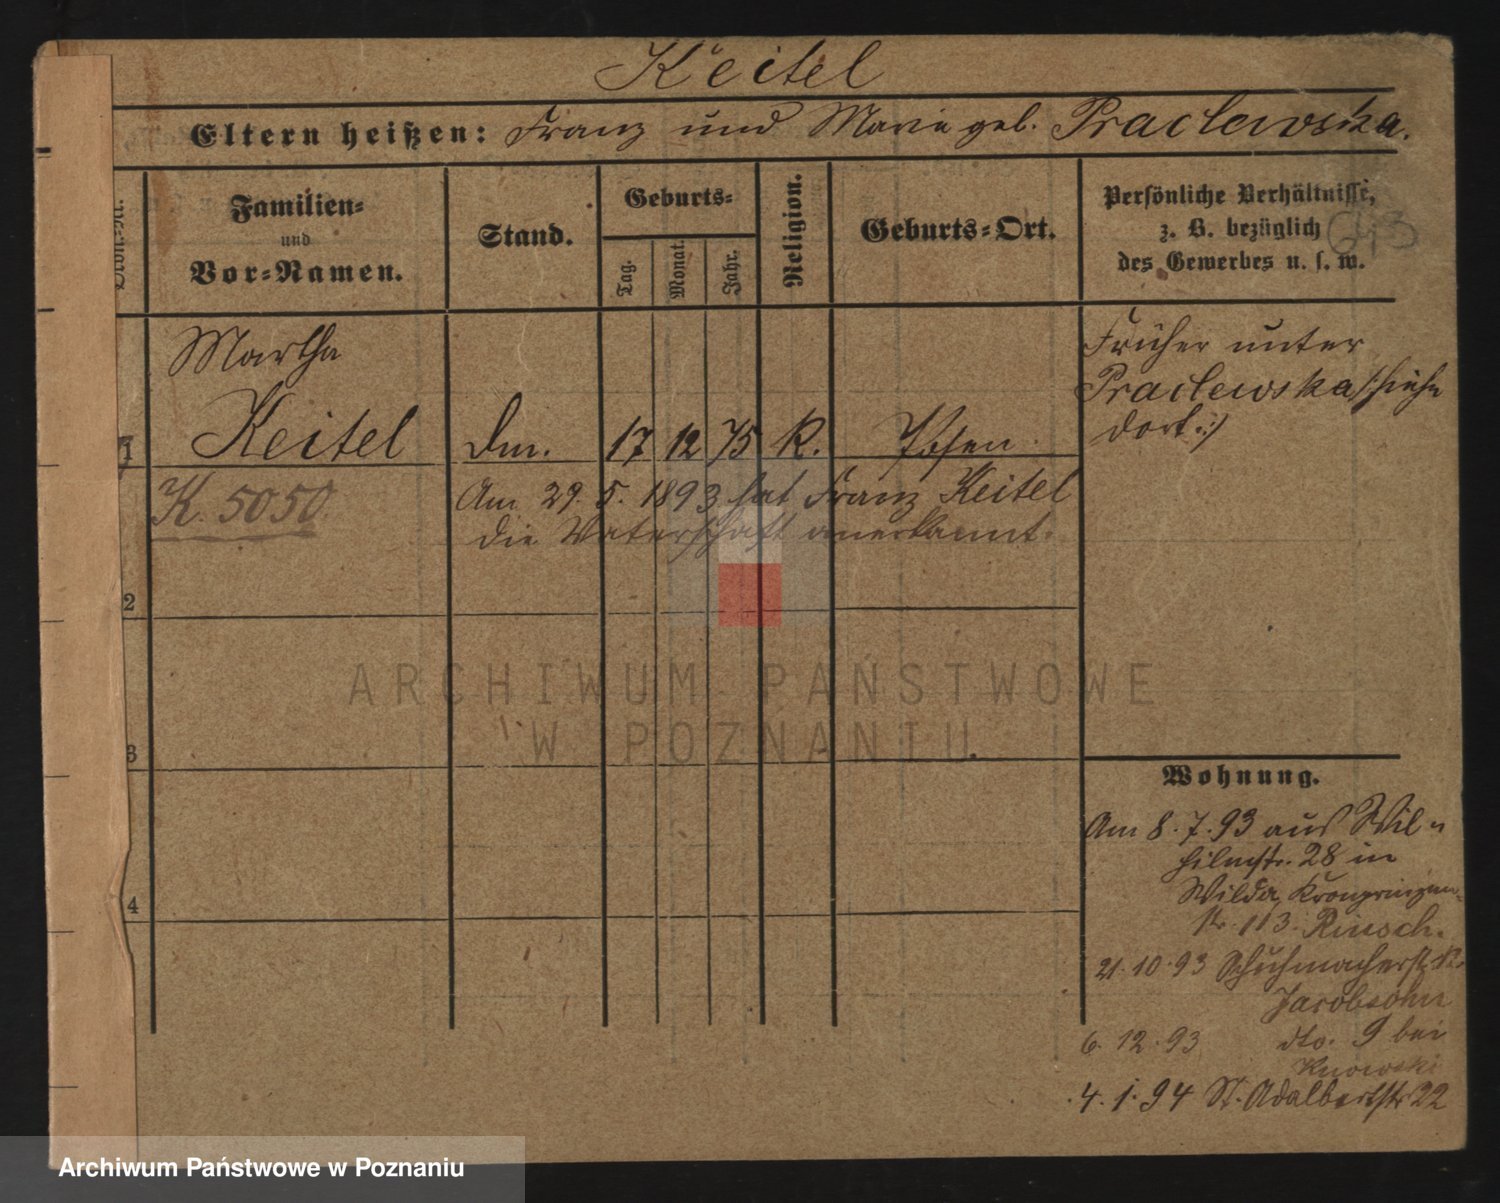 Keitel
Eltern heißen: Franz und Marie geb. Praclewska.
Familien-
und
Vor-Namen.
Stand.
Geburts-
Tag.
Monat.
Jahr.
Religion.
Geburts-Ort.
Persönliche Verhältnisse,
z. B. bezüglich
des Gewerbes u. s. w.
643
Martha
Keitel
1
Dm. 17 12 75 K. Posen
Früher unter
Praclewska /: siehe
dort :/
K. 5050
Am 29. 5. 1893 hat Franz Keitel
die Vaterschaft anerkannt.
2
3
4
Wohnung.
Am 8. 7. 93 aus Wil-
helmstr. 28 in
Wilda, Kronprinzen-
str. 113.
21. 10. 93 Schuhmacherstr.
Jacobsohn
6. 12. 93 dto. 9 bei
4. 1. 94 St. Adalbertstr 22
ARCHIWUM PAŃSTWOWE
W POZNANIU
Archiwum Państwowe w Poznaniu